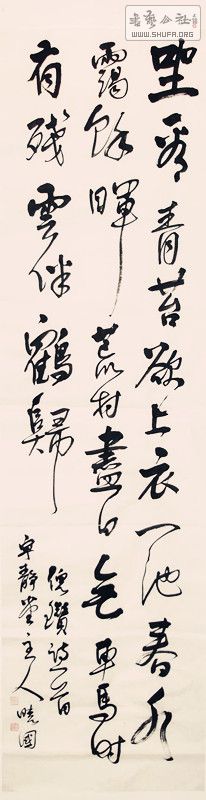 書藝公社
WWW.SHUFA.ORG
坐看青苔欲上衣一池春水
靄餘暉荒村盡日無車馬時
有殘雲伴鶴歸
倪瓚詩一首
卓靜堂主人曉國